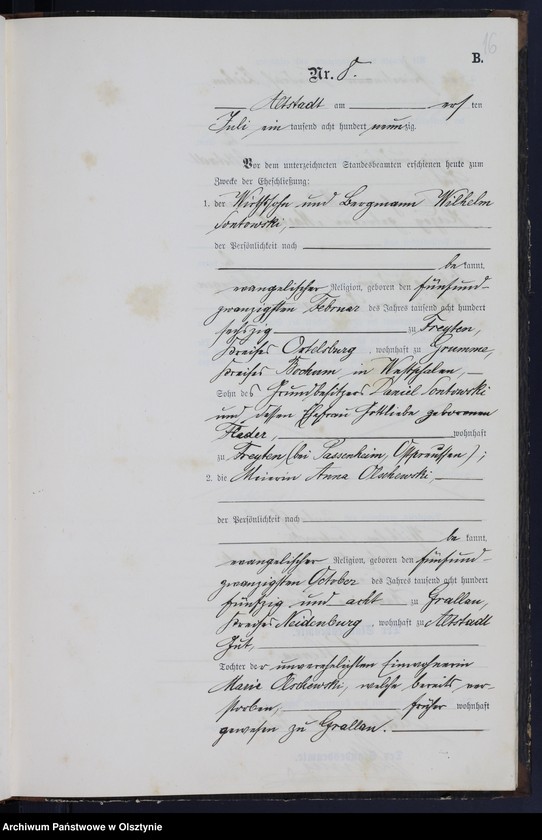 16
B.
Nr. 8.
Altstadt am ersten
Juli ein tausend acht hundert neunzig.
Vor dem unterzeichneten Standesbeamten erschienen heute zum
Zwecke der Eheschließung:
1. der Wirthssohn und Bergmann Wilhelm
Sontowski,
der Persönlichkeit nach
bekannt,
evangelischer Religion, geboren den fünfund-
zwanzigsten Februar des Jahres tausend acht hundert
sechszig zu Freyten,
Kreises Ortelsburg, wohnhaft zu Grumme,
Kreises Bochum in Westphalen,
Sohn des Grundbesitzers Daniel Sontowski
und dessen Ehefrau Gottliebe geborenen
wohnhaft
zu Freyten (bei Passenheim, Ostpreussen);
2. die Meierin Anna Olschewski,
der Persönlichkeit nach
bekannt,
evangelischer Religion, geboren den fünfund-
zwanzigsten October des Jahres tausend acht hundert
fünfzig und acht zu Grallau,
Kreises Neidenburg, wohnhaft zu Altstadt
Gut,
Tochter der unverehelichten Einwohnerin
Marie Olschewski, welche bereits ver-
storben, früher wohnhaft
gewesen zu Grallau.
Archiwum Państwowe w Olsztynie